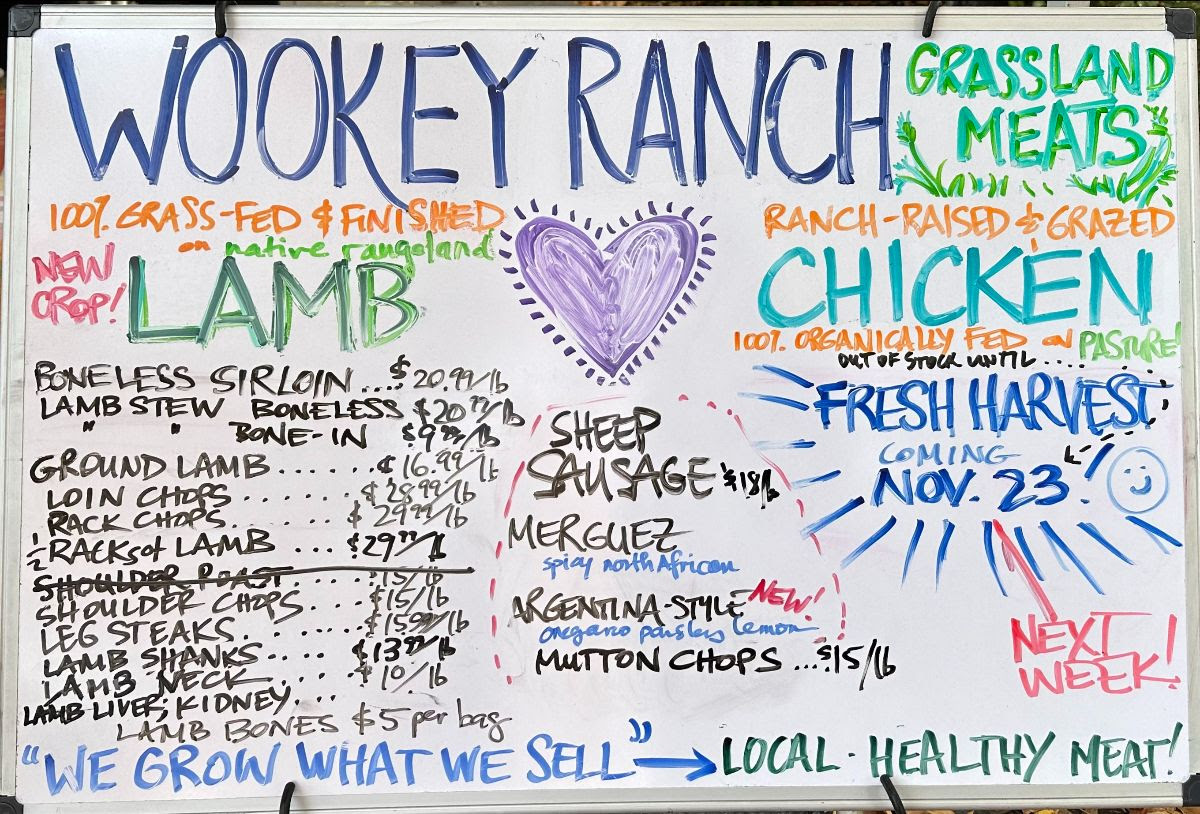 WOOKEY RANCH
GRASSLAND
MEATS
100% GRASS-FED & FINISHED
on native rangeland
NEW
CROP!
LAMB
BONELESS SIRLOIN .... $20.99/lb
LAMB STEW BONELESS $20.99/lb
" " BONE-IN $9.99/lb
GROUND LAMB ...... $16.99/lb
LOIN CHOPS ...... $28.99/lb
RACK CHOPS ...... $29.99/lb
1/2 RACKS of LAMB ... $29.99/lb
SHOULDER ROAST .... $15/lb
SHOULDER CHOPS .... $15/lb
LEG STEAKS ...... $15.99/lb
LAMB SHANKS .... $13.99/lb
LAMB NECK .... $10/lb
LAMB LIVER, KIDNEY....
LAMB BONES $5 per bag
SHEEP
SAUSAGE $18/lb
MERGUEZ
spicy north African
ARGENTINA-STYLE NEW!
oregano parsley lemon
MUTTON CHOPS ... $15/lb
RANCH-RAISED & GRAZED
CHICKEN
100% ORGANICALLY FED on PASTURE!
OUT OF STOCK UNTIL ....
FRESH HARVEST
COMING
NOV. 23
NEXT
WEEK!
"WE GROW WHAT WE SELL" → LOCAL - HEALTHY MEAT!